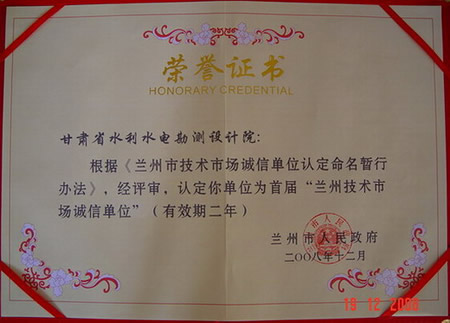 荣誉证书
HONORARY CREDENTIAL
甘肃省水利水电勘测设计院:
根据《兰州市技术市场诚信单位认定命名暂行
办法》,经评审,认定你单位为首届“兰州技术市
场诚信单位”(有效期二年)
兰州市人民政府
二〇〇八年十二月